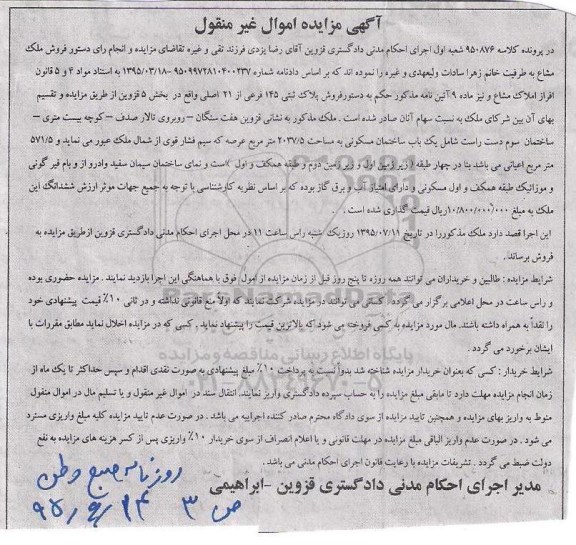 آگهی مزایده اموال غیر منقول
در پرونده کلاسه ۹۵۰۸۷۶ شعبه اول اجرای احکام مدنی دادگستری قزوین آقای رضا یزدی فرزند تقی و غیره تقاضای مزایده و انجام رای دستور فروش ملک
مشاع به طرفیت خانم زهرا سادات ولیعهدی و غیره را نموده اند که بر اساس دادنامه شماره ۹۵۰۹۹۷۲۸۱۰۴۰۰۲۳۷ -۱۳۹۵/۰۳/۱۸ به استناد مواد ۴ و ۵ قانون
افراز املاک مشاع و نیز ماده ۹ آئین نامه مذکور حکم به دستورفروش پلاک ثبتی ۱۴۵ فرعی از ۲۱ اصلی واقع در بخش ۵ قزوین از طریق مزایده و تقسیم
بهای آن بین شرکای ملک به نسبت سهام آنان صادر شده است . ملک مذکور به نشانی قزوین هفت سنگان – روبروی تالار صدف – کوچه بیست متری –
ساختمان سوم دست راست شامل یک باب ساختمان مسکونی به مساحت ۲۰۳۷/۵ متر مربع عرصه که سیم فشار قوی از شمال ملک عبور می نماید و ۵۷۱/۵
متر مربع اعیانی می باشد بنا در چهار طبقه ( زیر زمین اول و زیر زمین دوم و طبقه همکف و اول ) است و نمای ساختمان سیمان سفید وادرو از و بام قیر گونی
و موزائیک طبقه همکف و اول مسکونی و دارای امتیاز آب و برق گاز بوده که بر اساس نظریه کارشناسی با توجه به جمیع جهات موثر ارزش ششدانگ این
ملک به مبلغ ۱۰/۸۰۰/۰۰۰/۰۰۰ ریال قیمت گذاری شده است .
این اجرا قصد دارد ملک مذکوررا در تاریخ ۱۳۹۵/۰۷/۱۱ روزیک شنبه راس ساعت ۱۱ در محل اجرای احکام مدنی دادگستری قزوین ازطریق مزایده به
فروش برساند.
شرایط مزایده : طالبین و خریداران می توانند همه روزه تا پنج روز قبل از زمان مزایده از امول فوق با هماهنگی این اجرا بازدید نمایند . مزایده حضوری بوده
و راس ساعت در محل اعلامی برگزار می گردد کسانی می توانند در مزایده شرکت نمایند که اولاً منع قانونی نداشته و در ثانی ۱۰٪ قیمت پیشنهادی خود
را نقداً به همراه داشته باشند. مال مورد مزایده به کسی فروخته می شود که بالاترین قیمت را پیشنهاد نماید , کسی که در مزایده اخلال نماید مطابق مقررات با
ایشان برخورد می گردد .
شرایط خریدار : کسی که بعنوان خریدار مزایده شناخته شد بدواً نسبت به پرداخت ۱۰٪ مبلغ پیشنهادی به صورت نقدی اقدام و سپس حداکثر تا یک ماه از
زمان انجام مزایده مهلت دارد تا مابقی مبلغ مزایده را به حساب سپرده دادگستری واریز نمایند. انتقال سند در اموال غیر منقول و یا تسلیم مال در اموال منقول
منوط به واریز بهای مزایده و همچنین تایید مزایده از سوی دادگاه محترم صادر کننده اجراییه می باشد . در صورت عدم تایید مزایده کلیه مبلغ واریزی مسترد
می شود . در صورت عدم واریز الباقی مبلغ مزایده در مهلت قانونی و یا اعلام انصراف از سوی خریدار ۱۰٪ واریزی پس از کسر هزینه های مزایده به نفع
دولت ضبط می گردد . تشریفات مزایده با رعایت قانون اجرای احکام مدنی می باشد .
مدیر اجرای احکام مدنی دادگستری قزوین –ابراهیمی
روزنامه صبح وطن
ص ۳
پایگاه اطلاع رسانی مناقصه و مزایده
۰۲۱-۸۸۳۴۹۶۷۰-۵